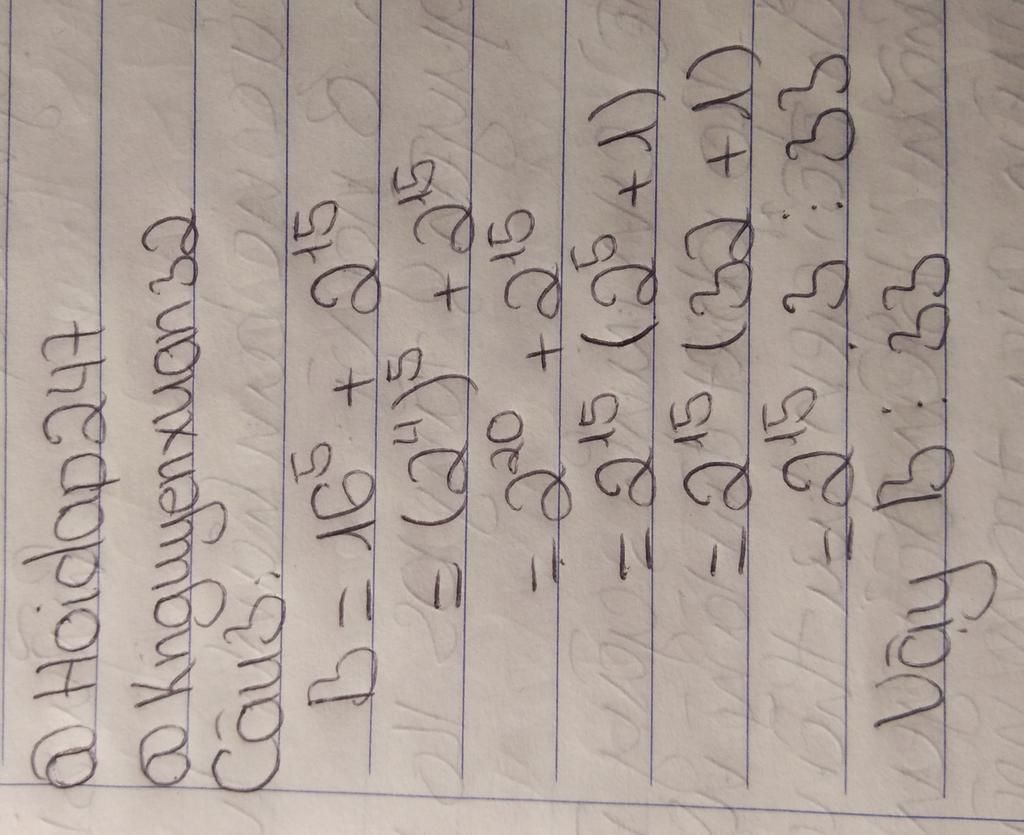 @ Hoidap247
@ Knguyenxuan32
Câu3:
B = 16⁵ + 2¹⁵
= (2⁴)⁵ + 2¹⁵
= 2²⁰ + 2¹⁵
= 2¹⁵ (2⁵ + 1)
= 2¹⁵ (32 + 1)
= 2¹⁵. 33 ⋮ 33
Vậy B ⋮ 33